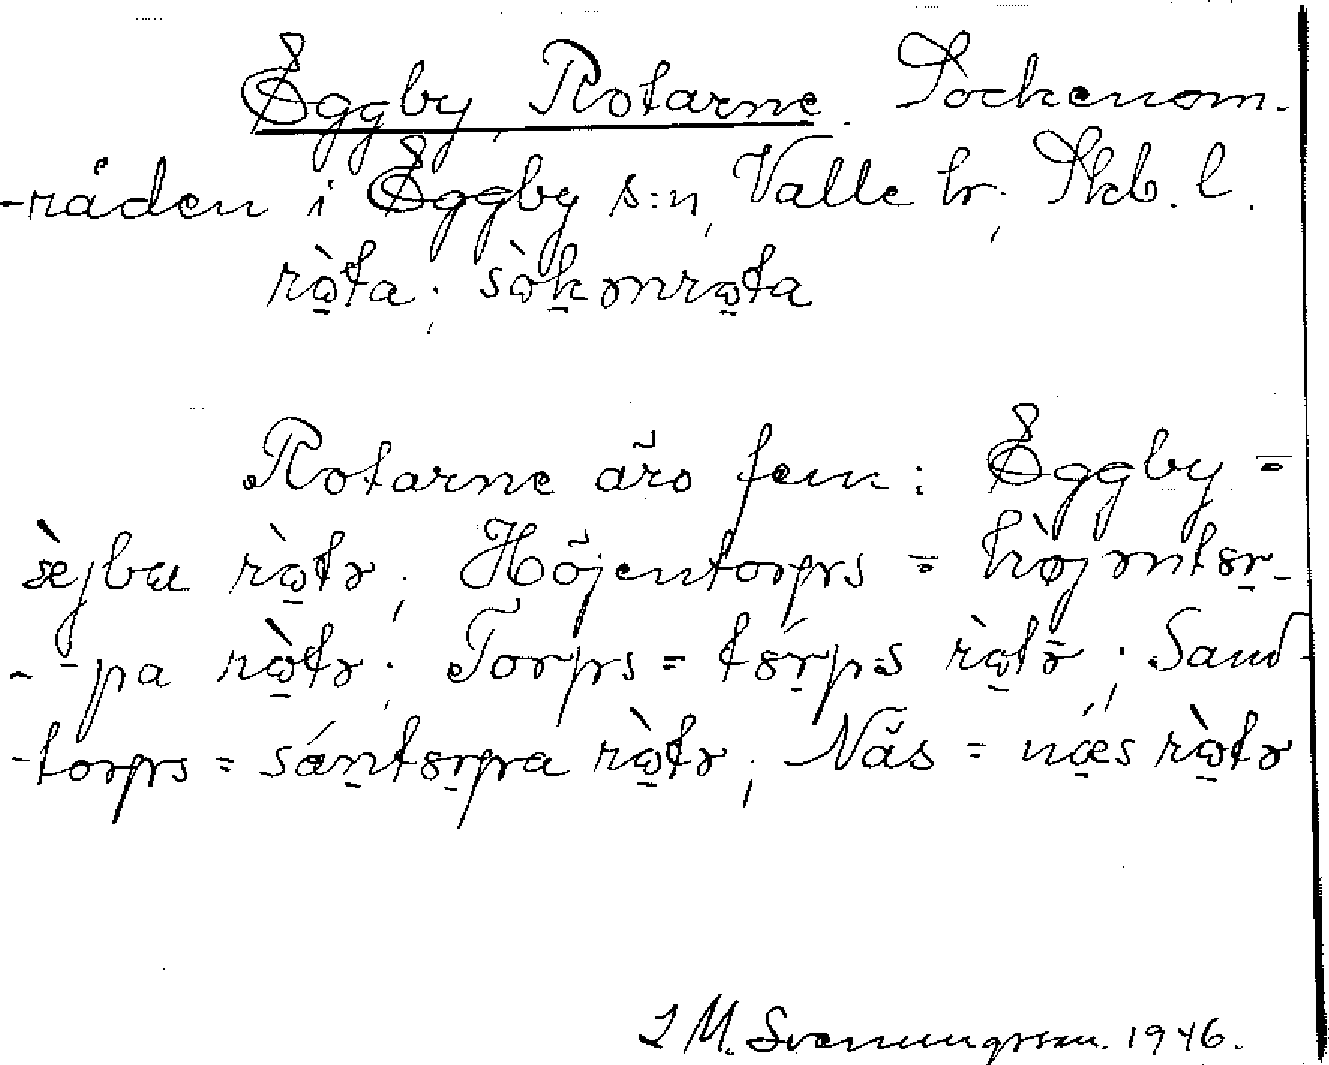 Eggby, Rotarne. Sockenom-
-råden i Eggby s:n, Valle hr; Skb. l.
rò̱ta; sò̱kənrò̱ta
Rotarne äro fem: Eggby =
æ̀jbu rò̱tə; Höjentorps = hø̀jəntɞr-
-pa rò̱tə; Torps = tɞ́rps rò̱tə; Sand-
-torps = sántɞrpa rò̱tə; Näs = næs rò̱tə
L M. Svenungsson. 1946.